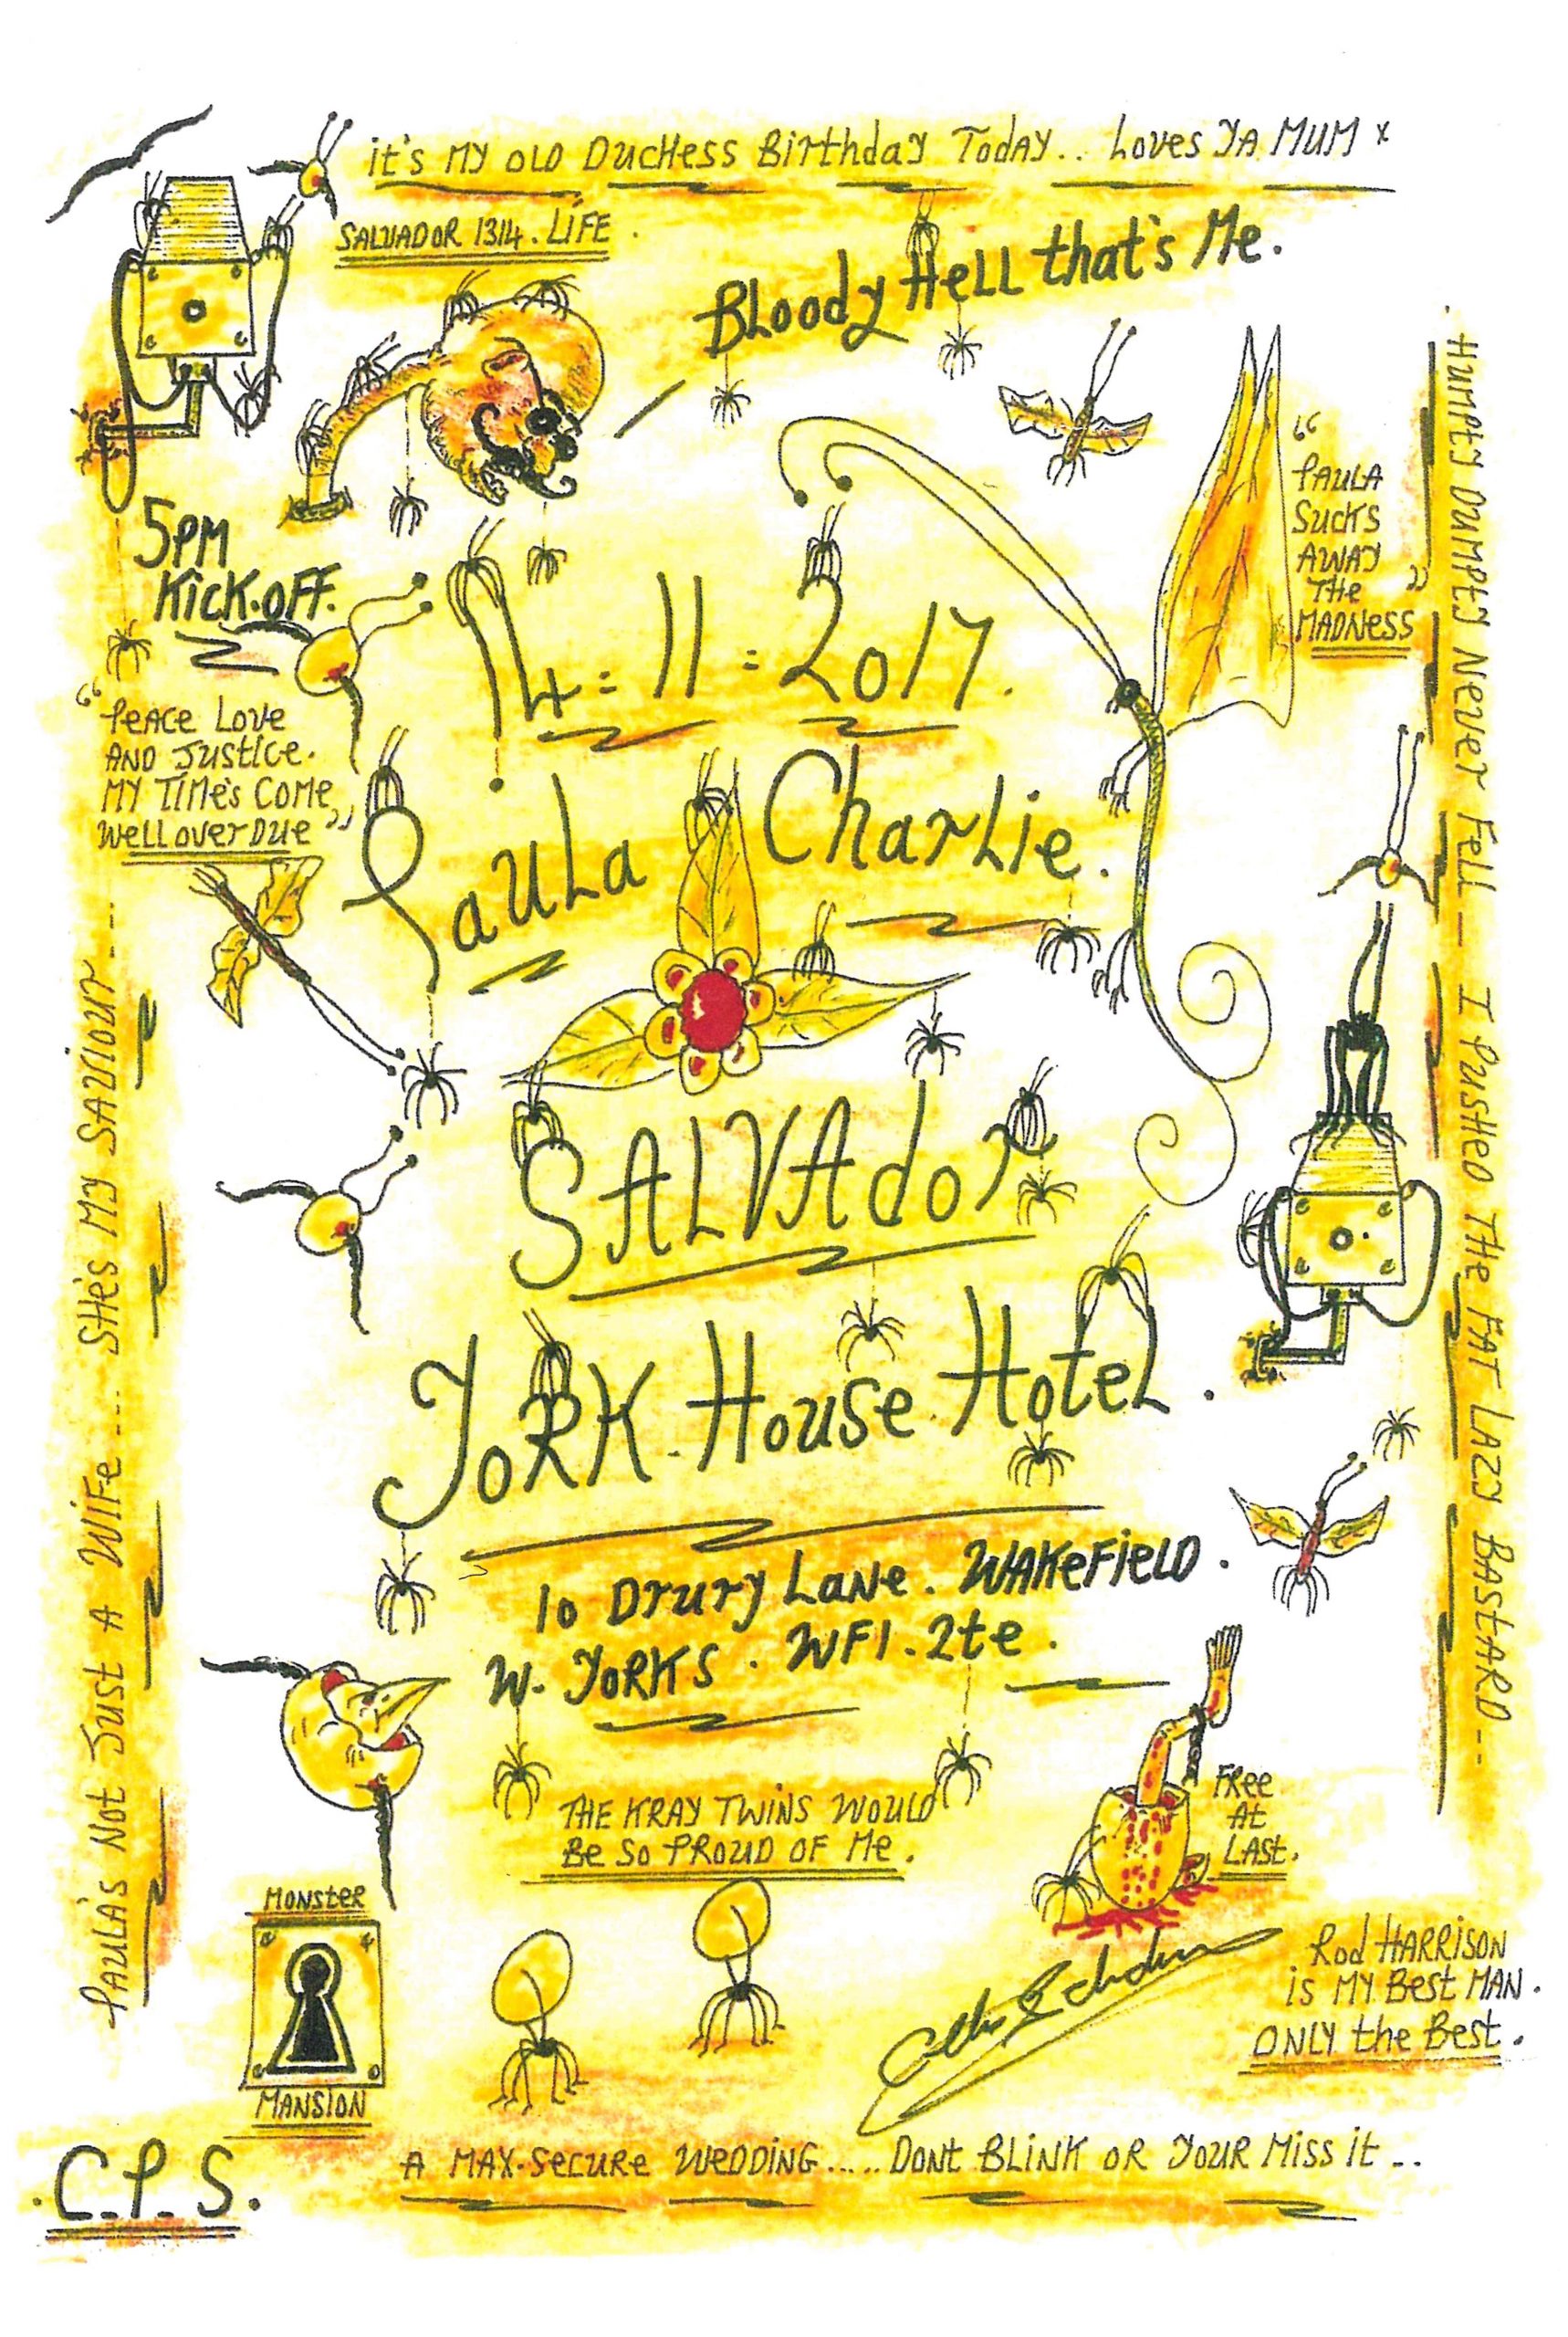 it's MY OLD DUCHESS Birthday Today.. Loves YA MUM x
SALVADOR 1314. LIFE.
BLoody HeLL that's Me.
5PM
Kick.oFF.
"PAULA
SUCKS
AWAY
THe
MADNess"
14:11:2017.
"PeACe Love
AND Justice.
MY TIMe's COMe
WeLL over Due"
PauLa CharLie.
SALVAdor
YoRK House HoteL.
10 Drury LaNe. WAKeFieLD.
W. YoRKs. WF1.2te.
THE KRAY TWINS WOULD
Be SO PROUD OF Me.
FRee
At
LAST.
MONSteR
MANSION
Rod HARRISON
is MY Best MAN.
ONLY the Best.
.C.P.S.
A MAX-SeCURe WeDDiNG..... DONt BLINK OR YOUR Miss it..
PAULA'S Not Just A WIFe.... SHe's MY SAViour...
HUMPtY DUMPtY Never FeLL... I PUSHeD THe FAT LAZY BAStARD...